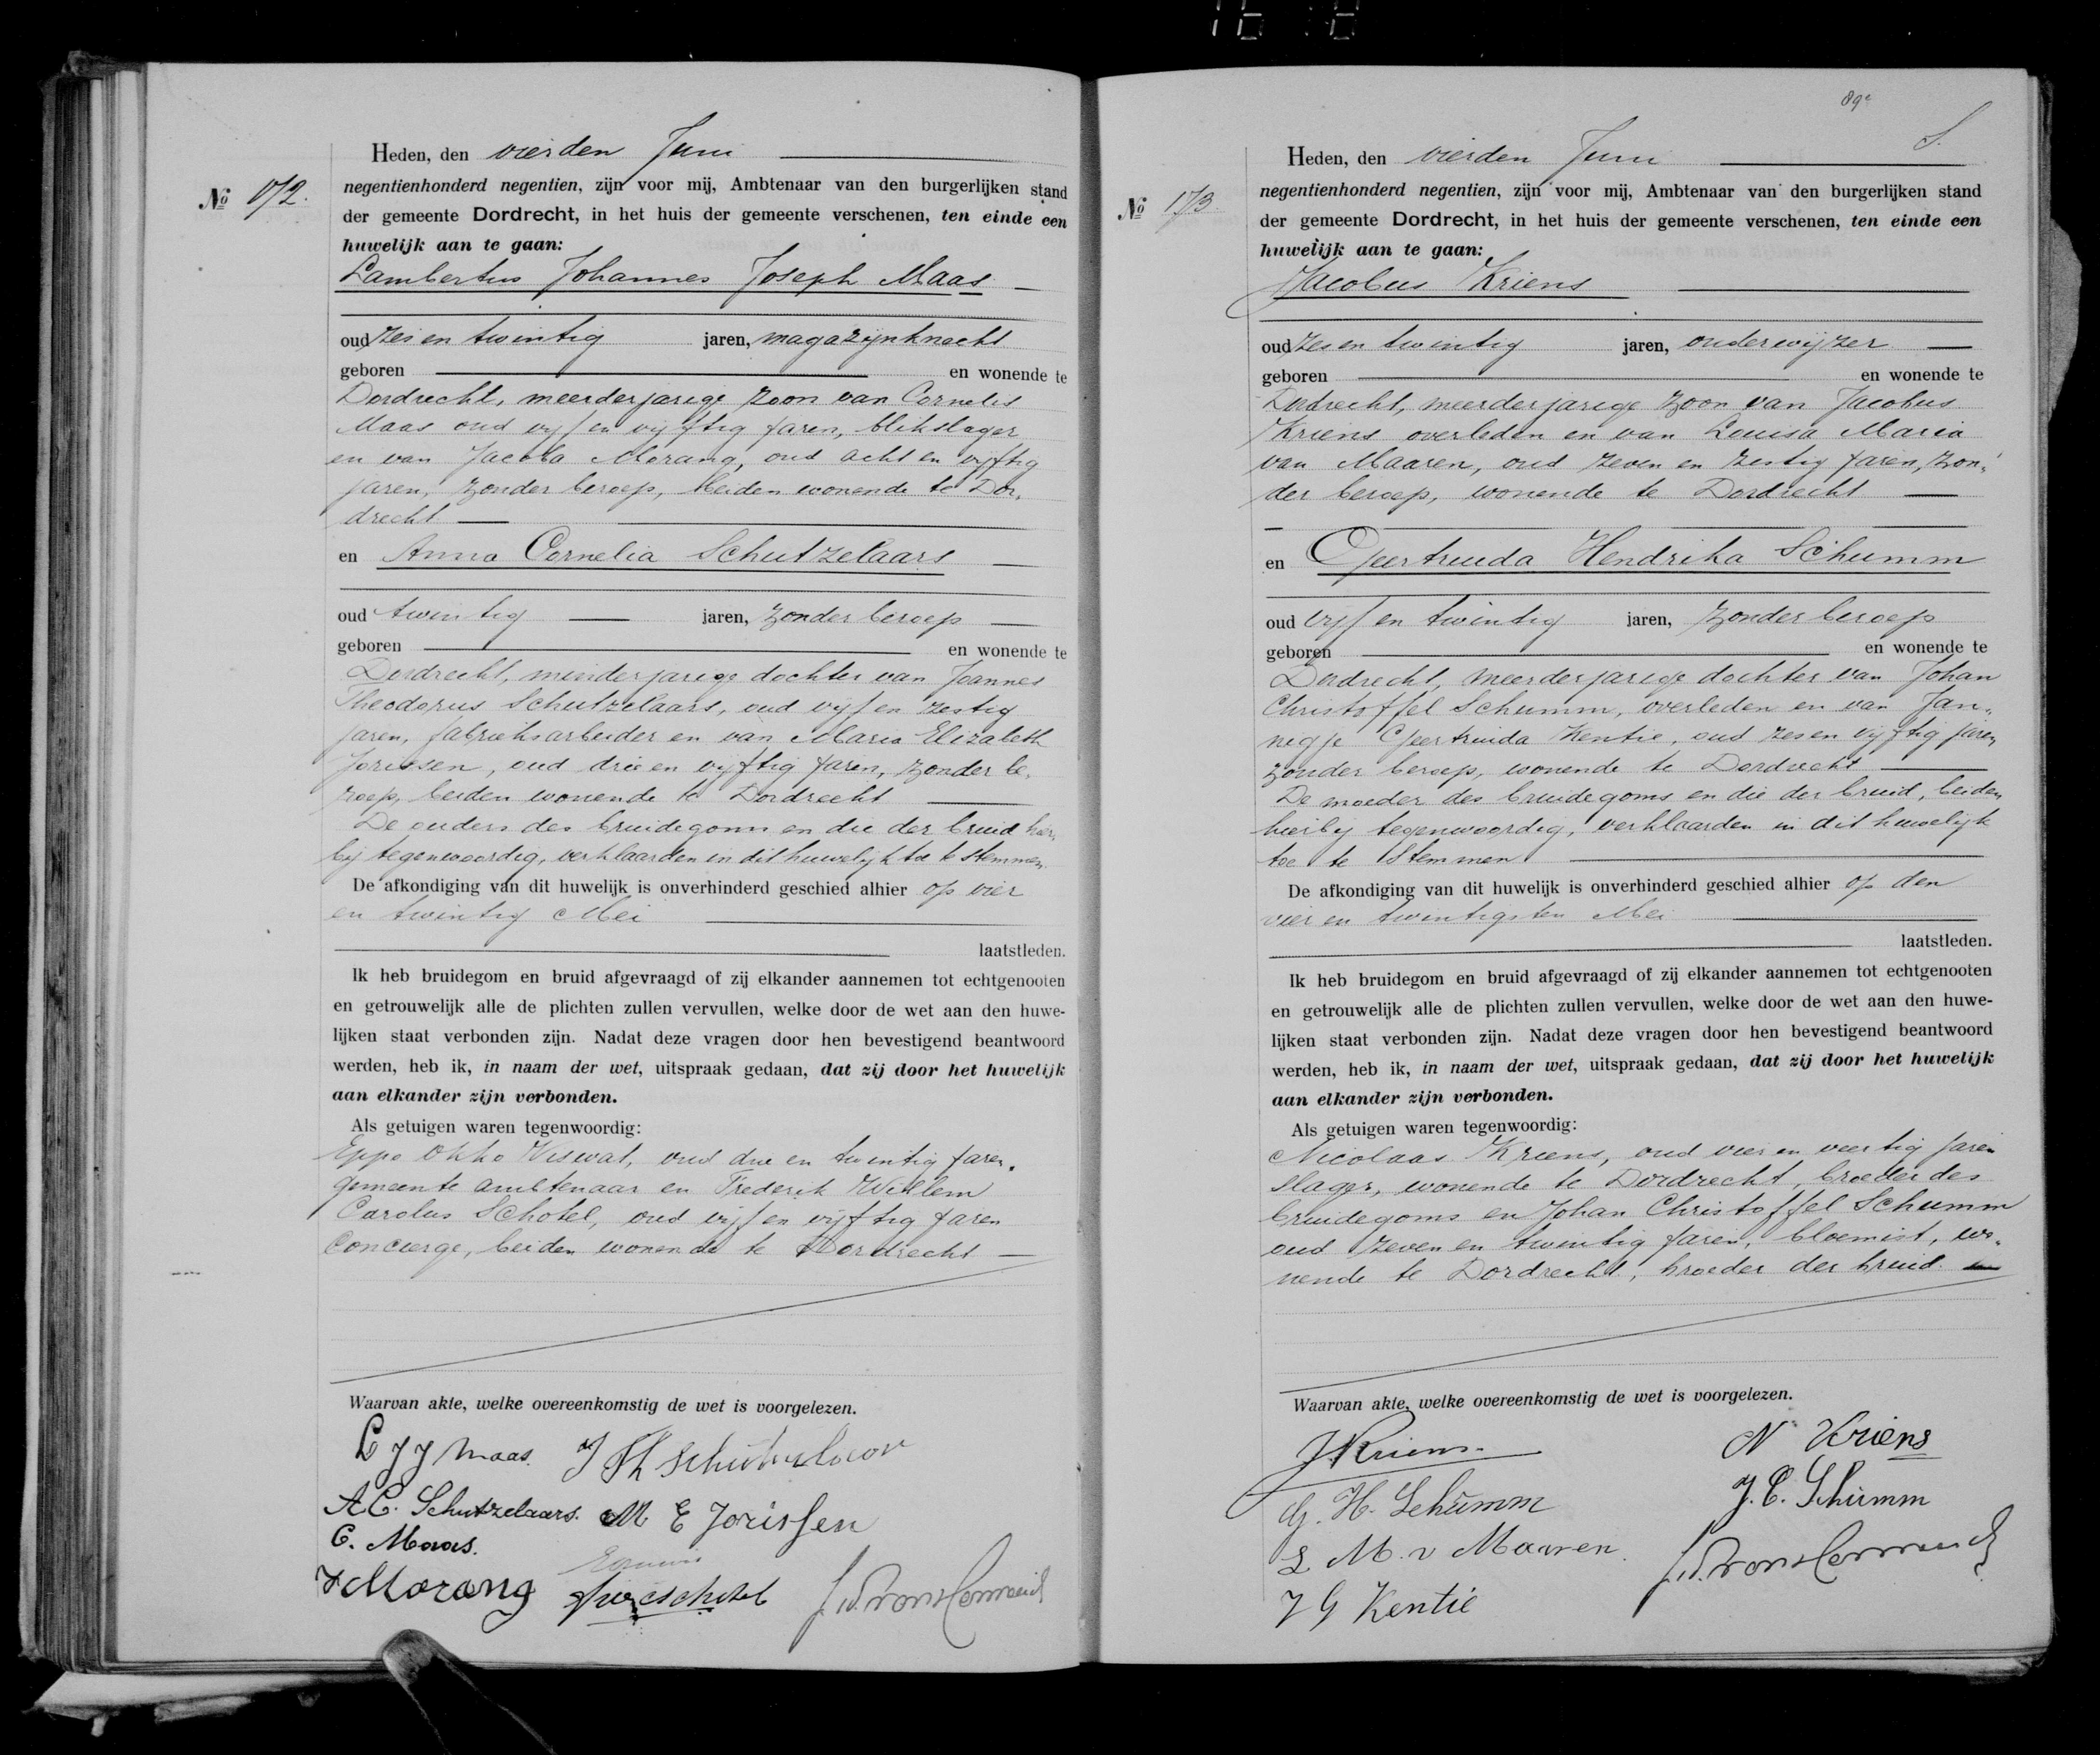 Heden, den vierden Juni
No 172.
negentienhonderd negentien, zijn voor mij, Ambtenaar van den burgerlijken stand
der gemeente Dordrecht, in het huis der gemeente verschenen, ten einde een
huwelijk aan te gaan:
Lambertus Johannes Joseph Maas
oud zes en twintig jaren, magazijnknecht
geboren en wonende te
Dordrecht, meerderjarige zoon van Cornelis
Maas oud vijf en vijftig jaren, blikslager
en van Jacoba Morang, oud acht en vijftig
jaren, zonder beroep, beiden wonende te Dor,
drecht
en Anna Cornelia Schutzelaars
oud twintig jaren, zonder beroep
geboren en wonende te
Dordrecht, minderjarige dochter van Joannes
Theodorus Schutzelaars, oud vijf en zestig
jaren, fabrieksarbeider en van Maria Elizabeth
Jorissen, oud drie en vijftig jaren, zonder be,
roep, beiden wonende te Dordrecht
De ouders des bruidegoms en die der bruid hier,
bij tegenwoordig, verklaarden in dit huwelijk toe te stemmen.
De afkondiging van dit huwelijk is onverhinderd geschied alhier op vier
en twintig Mei
laatstleden.
Ik heb bruidegom en bruid afgevraagd of zij elkander aannemen tot echtgenooten
en getrouwelijk alle de plichten zullen vervullen, welke door de wet aan den huwe-
lijken staat verbonden zijn. Nadat deze vragen door hen bevestigend beantwoord
werden, heb ik, in naam der wet, uitspraak gedaan, dat zij door het huwelijk
aan elkander zijn verbonden.
Als getuigen waren tegenwoordig:
Eppo Okko Wiswat, oud drie en twintig jaren,
gemeente ambtenaar en Frederik Willem
Carolus Schotel, oud vijf en vijftig jaren
Concierge, beiden wonende te Dordrecht
Waarvan akte, welke overeenkomstig de wet is voorgelezen.
L J J Maas. J Th Schutzelaars
A C. Schutzelaars. M E Jorissen
C. Maas.
J Morang
89e
S.
Heden, den vierden Juni
No 173.
negentienhonderd negentien, zijn voor mij, Ambtenaar van den burgerlijken stand
der gemeente Dordrecht, in het huis der gemeente verschenen, ten einde een
huwelijk aan te gaan:
Jacobus Kriens
oud zes en twintig jaren, onderwijzer
geboren en wonende te
Dordrecht, meerderjarige zoon van Jacobus
Kriens overleden en van Louisa Maria
van Maaren, oud zeven en zestig jaren, zon,
der beroep, wonende te Dordrecht
en Geertruida Hendrika Schumm
oud vijf en twintig jaren, zonder beroep
geboren en wonende te
Dordrecht, meerderjarige dochter van Johan
Christoffel Schumm, overleden en van Jan,
negje Geertruida Kentie, oud zes en vijftig jaren
zonder beroep, wonende te Dordrecht
De moeder des bruidegoms en die der bruid, beiden
hierbij tegenwoordig, verklaarden in dit huwelijk
toe te stemmen
De afkondiging van dit huwelijk is onverhinderd geschied alhier op den
vier en twintigsten Mei
laatstleden.
Ik heb bruidegom en bruid afgevraagd of zij elkander aannemen tot echtgenooten
en getrouwelijk alle de plichten zullen vervullen, welke door de wet aan den huwe-
lijken staat verbonden zijn. Nadat deze vragen door hen bevestigend beantwoord
werden, heb ik, in naam der wet, uitspraak gedaan, dat zij door het huwelijk
aan elkander zijn verbonden.
Als getuigen waren tegenwoordig:
Nicolaas Kriens, oud vier en veertig jaren
slager, wonende te Dordrecht, broeder des
bruidegoms en Johan Christoffel Schumm
oud zeven en twintig jaren, bloemist, wo,
nende te Dordrecht, broeder der bruid.
Waarvan akte, welke overeenkomstig de wet is voorgelezen.
J. Kriens. N Kriens
G. H. Schumm J. C. Schumm
L M. v Maaren.
J G Kentie